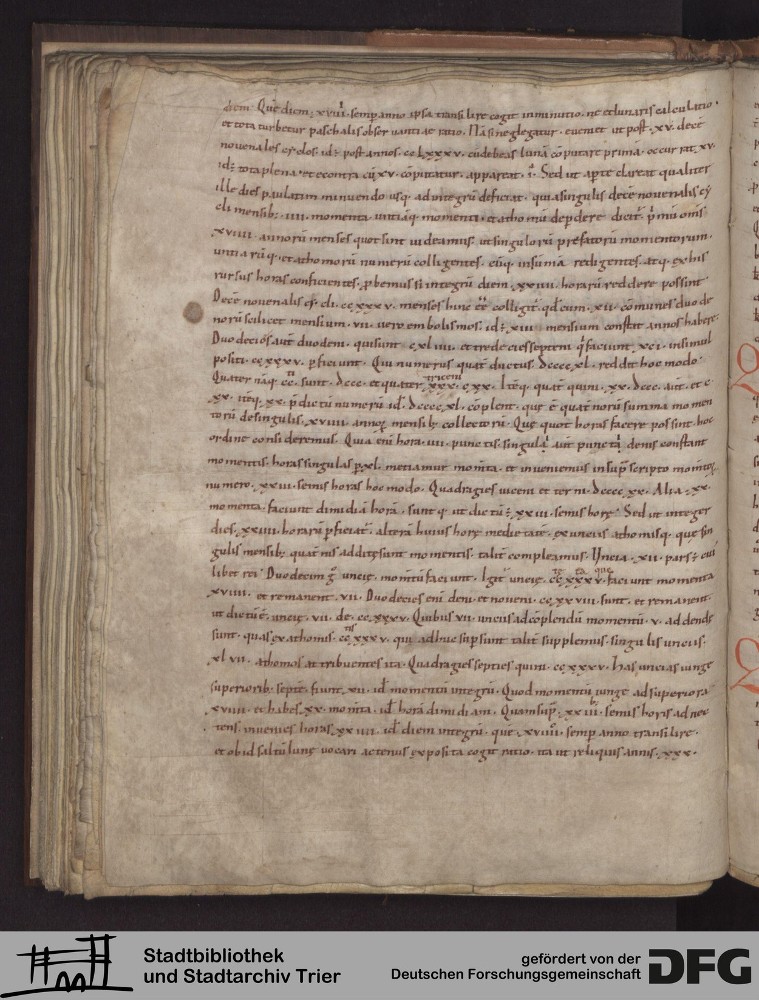 diem. Quę diem: xviiii. semp anno ipsa transilire cogit inminutio. ne et lunaris calculatio
et tota turbetur paschalis observantiae ratio. Nā si neglegatur. eveniet ut post. xv. decē
novenales cyclos. id: post annos. cclxxxv. cū debeas lunā cōputare primā. occurrat. xv.
id: tota plena. et econtra cū xv. cōputatur. appareat. i. Sed ut aperte clareat qualiter
ille dies paulatim minuendo usq; ad integrū deficiat. quia singulis decē novenalis cy
cli mensib; iiii. momenta. unciāq; momenti. et athomū deperdere dicit. primū om̄is
xviiii. annorū menses quot sint videamus. ut singulorū prefatorū momentorum.
untiarūq;. et athomorū numerū colligentes. eūq; in sūmā redigentes. atq; ex his
rursus horas conficientes. pbemus si integrū diem. xxiiii. horarū reddere possint.
Decē novenalis cycli. ccxxxv. menses hunc colligit. qd cum. xii. cōmunes duode
norū scilicet mensium. vii. vero embolismos. id: xiii. mensium constat annos habere.
Duodecies aut duodeni. qui sunt cxliiii. et tredecies septem q faciunt. xci. insimul
positi. ccxxxv. pficiunt. Qui numerus quat ductus. dccccxl. reddet hoc modo.
Quater nāq; cc. sunt. dccc. et quater. xxx. cxx. Itēq; quat quini. xx. dccc. aut. et c
xx. itēq; xx. p dictū numerū id. dccccxl. cōplent. quę ē quaternorū summa momen
torū de singulis. xviiii. annoꝝ mensib; collectorū. Quę quot horas facere possint. hoc
ordine consideremus. Quia enī hora. iiii. punctis. singula aut puncta denis constant
momentis. horas singulas p. xl. metiamur momta. et inveniemus in supscripto momtoꝝ
numero. xxiii. semis horas hoc modo. Quadragies viceni et terni. dccccxx. Alia. xx.
momenta. faciunt dimidiā horā. suntq; ut dictū: xxiii. semis horę. Sed ut integer
dies. xxiiii. horarū pficiat. alterā huius horę medietatē. ex unciis athomisq; que sin
gulis mensib; quatnis additę sunt momentis. talit compleamus. Uncia. xii. pars: cui
libet rei. Duodecim g uncię. momtū faciunt. Igit uncię. ccxxxv. faciunt momenta
xviiii. et remanent. vii. Duodecies enī deni et noveni. ccxxviii. sunt. et remanent.
ut dictū ē. uncię. vii. de. ccxxxv. Quibus vii. unciis ad cōplendū momentū. v. addendę
sunt. quas ex athomis. ccxxxv. qui adhuc supsunt talit supplemus. singulis unciis.
xlvii. athomos attribuentes ita. Quadragies septies quini. ccxxxv. Has uncias iunge
superiorib; septē. fiunt. xii. id momentū integrū. Quod momentū iunge ad superiora
xviiii. et habes. xx. momta. id horā dimidiam. Quam sup. xxiii. semis horis adnec
tens. invenies horas. xxiiii. id diem integrū. que. xviiii. semp anno transilire.
et ob id saltū lunę vocari actenus exposita cogit ratio. ita ut reliquis annis. xxx.
Stadtbibliothek
und Stadtarchiv Trier
gefördert von der
Deutschen Forschungsgemeinschaft
DFG